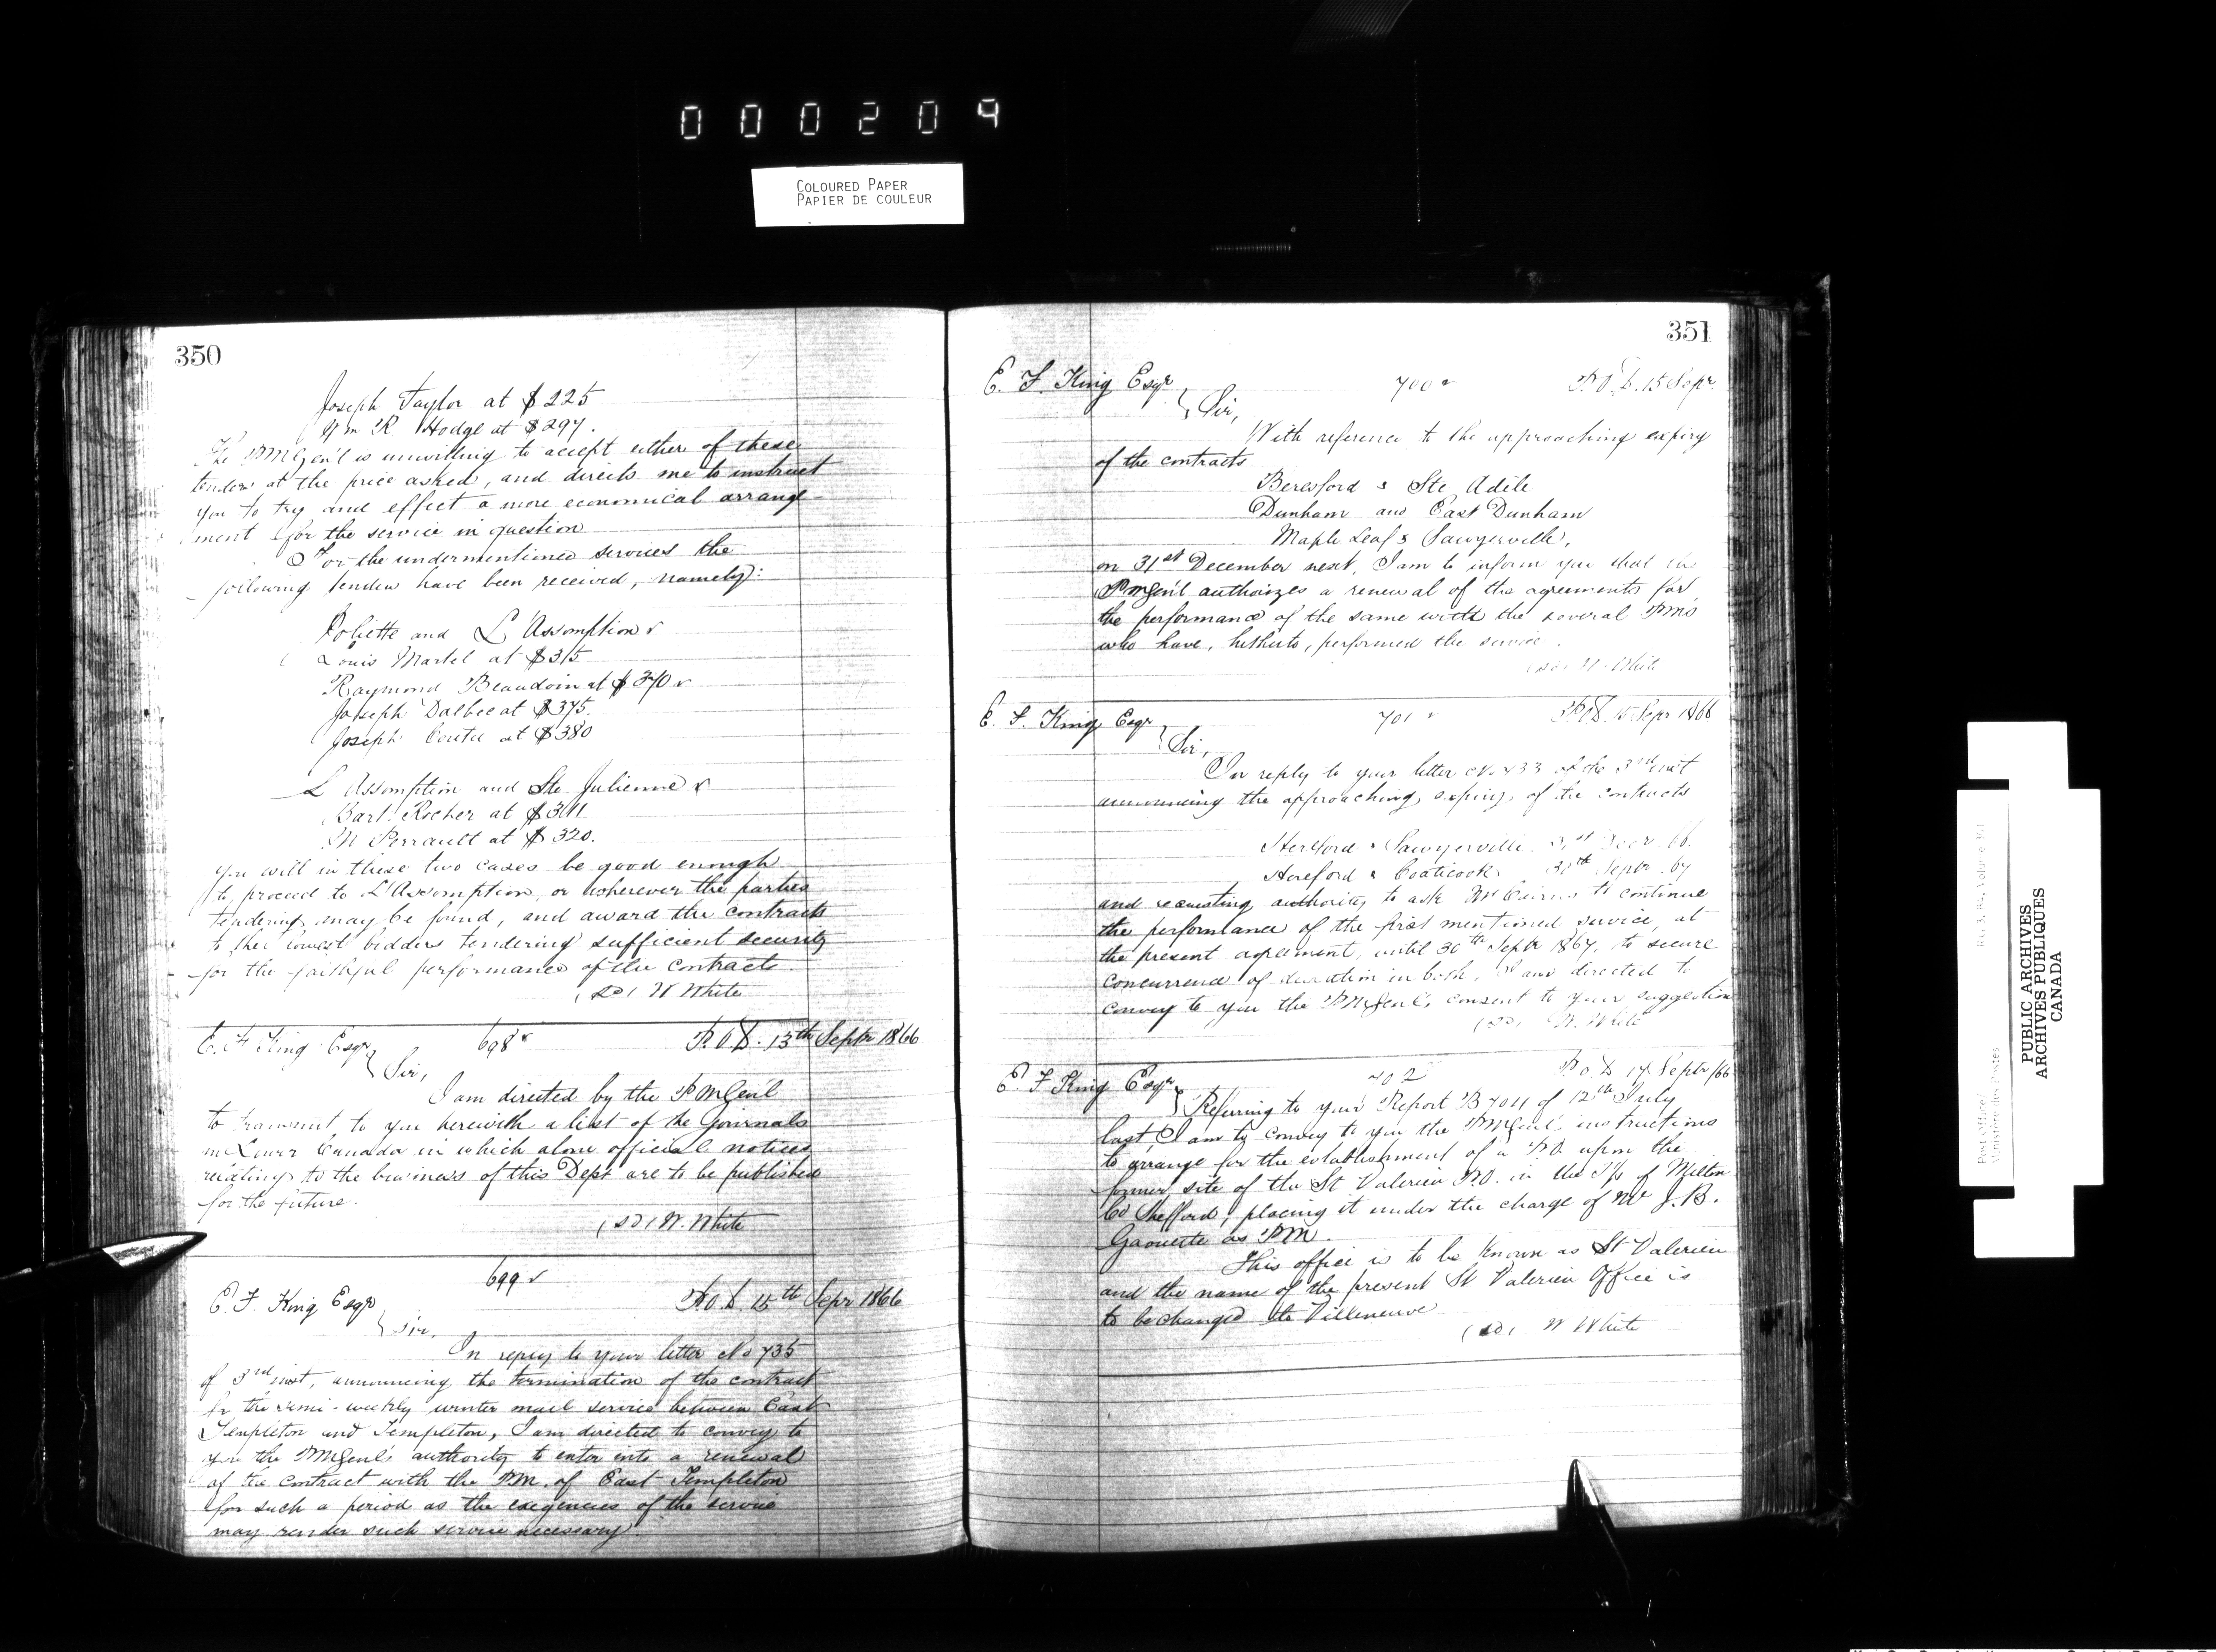 000204
COLOURED PAPER
PAPIER DE COULEUR
350
Joseph Taylor at $225
Wm R. Hodge at $297.
The PMGen'l is unwilling to accept either of these
tenders at the price asked, and directs me to instruct
you to try and effect a more economical arrange-
ment for the service in question
For the undermentioned services the
following tenders have been received, namely:
Joliette and L'Assomption
Louis Martel at $315
Raymond Beaudoin at $370
Joseph Dalbec at $375.
Joseph Coutu at $380
L'Assomption and Ste Julienne
Bart. Rocher at $311
M Perrault at $320.
You will in these two cases be good enough
to proceed to L'Assomption, or wherever the parties
tendering may be found, and award the contracts
to the lowest bidders tendering sufficient security
for the faithful performance of the contracts.
(sd) W White
E. F. King Esqr 698 P.O.D. 13th Septr 1866
Sir,
I am directed by the PMGenl
to transmit to you herewith a list of the Journals
in Lower Canada in which alone official notices
relating to the business of this Dept are to be published
for the future.
(sd) W. White
699
E. F. King Esqr P.O.D. 15th Sepr 1866
Sir,
In reply to your letter No 735
of 3rd inst, announcing the termination of the contract
for the semi-weekly winter mail service between East
Templeton and Templeton, I am directed to convey to
you the PMGenl's authority to enter into a renewal
of the contract with the PM. of East Templeton
for such a period as the exegencies of the service
may render such service necessary.
351
E. F. King Esqr 700 P.O.D. 15 Sepr.
Sir,
With reference to the approaching expiry
of the contracts
Beresford & Ste Adile
Dunham and East Dunham
Maple Leaf & Sawyerville,
on 31st December next, I am to inform you that the
PMGen'l authorizes a renewal of the agreements for
the performance of the same with the several PMs
who have, hitherto, performed the service.
(sd) W. White
E. F. King Esqr 701 P.O.D. 15 Sepr 1866
Sir,
In reply to your letter No 733 of the 3rd inst
announcing the approaching expiry of the contracts
Hereford & Sawyerville. 31st Decr. 66.
Hereford & Coaticook 30th Septr. 67
and requesting authority to ask Mr Cairns to continue
the performance of the first mentioned service, at
the present agreement, until 30th Septr 1867, to secure
concurrence of duration in both, I am directed to
convey to you the PMGenl's consent to your suggestion
(sd) W. White
E. F. King Esqr 702 P.O.D 17 Septr /66
Referring to your Report B 7011 of 12th July
last, I am to convey to you the PMGenl's instructions
to arrange for the establishment of a P.O. upon the
former site of the St Valerien P.O. in the T/p of Milton
Co Shefford, placing it under the charge of Mr J. B.
Gaouette as PM.
This office is to be known as St Valerien
and the name of the present St Valerien Office is
to be changed to Villeneuve
(sd) W White
Post Office
Ministère des Postes
PUBLIC ARCHIVES
ARCHIVES PUBLIQUES
CANADA